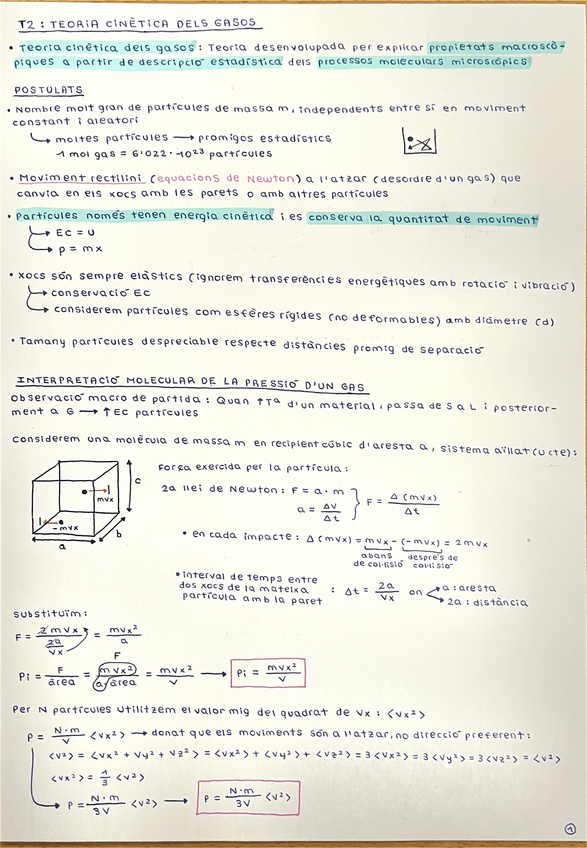 T2: TEORIA CINÈTICA DELS GASOS
• Teoria cinètica dels gasos: Teoria desenvolupada per explicar propietats macroscò-
piques a partir de descripció estadística dels processos moleculars microscòpics
POSTULATS
• Nombre molt gran de partícules de massa m, independents entre sí en moviment
constant i aleatori
→ moltes partícules → promigos estadístics
1 mol gas = 6'022·10²³ partícules
• Moviment rectilini (equacions de Newton) a l'atzar (desordre d'un gas) que
canvia en els xocs amb les parets o amb altres partícules
• Partícules només tenen energia cinètica i es conserva la quantitat de moviment
→ Ec = U
→ p = mx
• xocs són sempre elàstics (ignorem transferències energètiques amb rotació i vibració)
→ conservació Ec
→ considerem partícules com esfères rígides (no deformables) amb diàmetre (d)
• Tamany partícules despreciable respecte distàncies promig de separació
INTERPRETACIÓ MOLECULAR DE LA PRESSIÓ D'UN GAS
Observació macro de partida: Quan ↑Tª d'un material, passa de S a L i posterior-
ment a G → ↑ Ec partícules
Considerem una molècula de massa m en recipient cúbic d'aresta a, sistema aïllat (U cte):
c
mvx
-mvx
b
a
Força exercida per la partícula:
2a llei de Newton: F = a·m
a = Δv/Δt
F = Δ(mvx)/Δt
• en cada impacte: Δ(mvx) = mvx - (-mvx) = 2mvx
abans de col·lisió
després de col·lisió
• interval de temps entre
dos xocs de la mateixa
partícula amb la paret
: Δt = 2a/vx on
a: aresta
2a: distància
Substituïm:
F = 2mvx/(2a/vx) = mvx²/a
F
Pi = F/àrea = mvx²/(a·àrea) = mvx²/V → Pi = mvx²/V
Per N partícules utilitzem el valor mig del quadrat de vx: <vx²>
P = N·m/V <vx²> → donat que els moviments són a l'atzar, no direcció preferent:
<v²> = <vx² + vy² + vz²> = <vx²> + <vy²> + <vz²> = 3<vx²> = 3<vy²> = 3<vz²> = <v²>
<vx²> = 1/3 <v²>
→ P = N·m/3V <v²> → P = N·m/3V <v²>
1